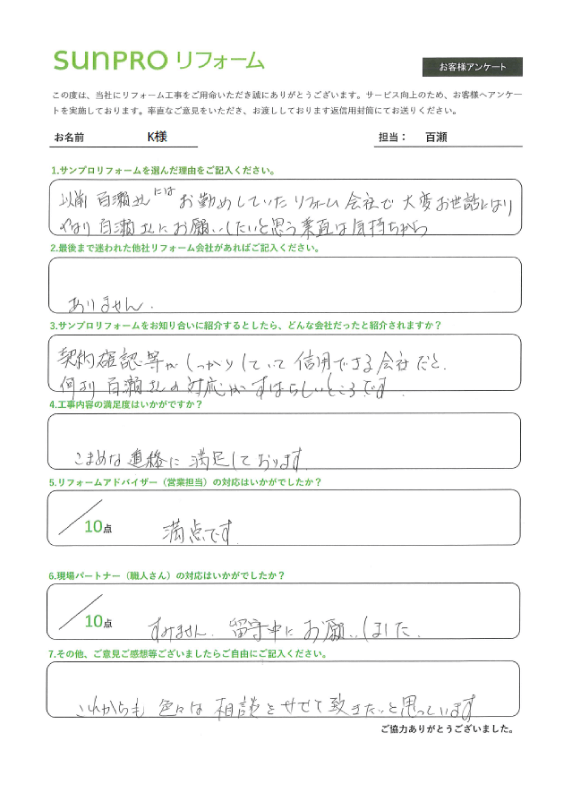 SUNPRO リフォーム
お客様アンケート
この度は、当社にリフォーム工事をご用命いただき誠にありがとうございます。サービス向上のため、お客様へアンケー
トを実施しております。率直なご意見をいただき、お渡ししております返信用封筒にてお送りください。
お名前 K様 担当： 百瀬
1.サンプロリフォームを選んだ理由をご記入ください。
以前 百瀬さんには お勤めしていた リフォーム 会社で 大変 お世話になり
やはり 百瀬さんに お願いしたいと思う 素直な気持ちから
2.最後まで迷われた他社リフォーム会社があればご記入ください。
ありません.
3.サンプロリフォームをお知り合いに紹介するとしたら、どんな会社だったと紹介されますか？
契約確認等が しっかりしていて 信用できる会社だと.
何より 百瀬さんの 対応が すばらしいところです.
4.工事内容の満足度はいかがですか？
こまめな連絡に 満足しております.
5.リフォームアドバイザー（営業担当）の対応はいかがでしたか？
／10点 満点です.
6.現場パートナー（職人さん）の対応はいかがでしたか？
／10点 すみません. 留守中に お願いしました.
7.その他、ご意見ご感想等ございましたらご自由にご記入ください。
これからも 色々な 相談を させて 致きたいと思っています
ご協力ありがとうございました。